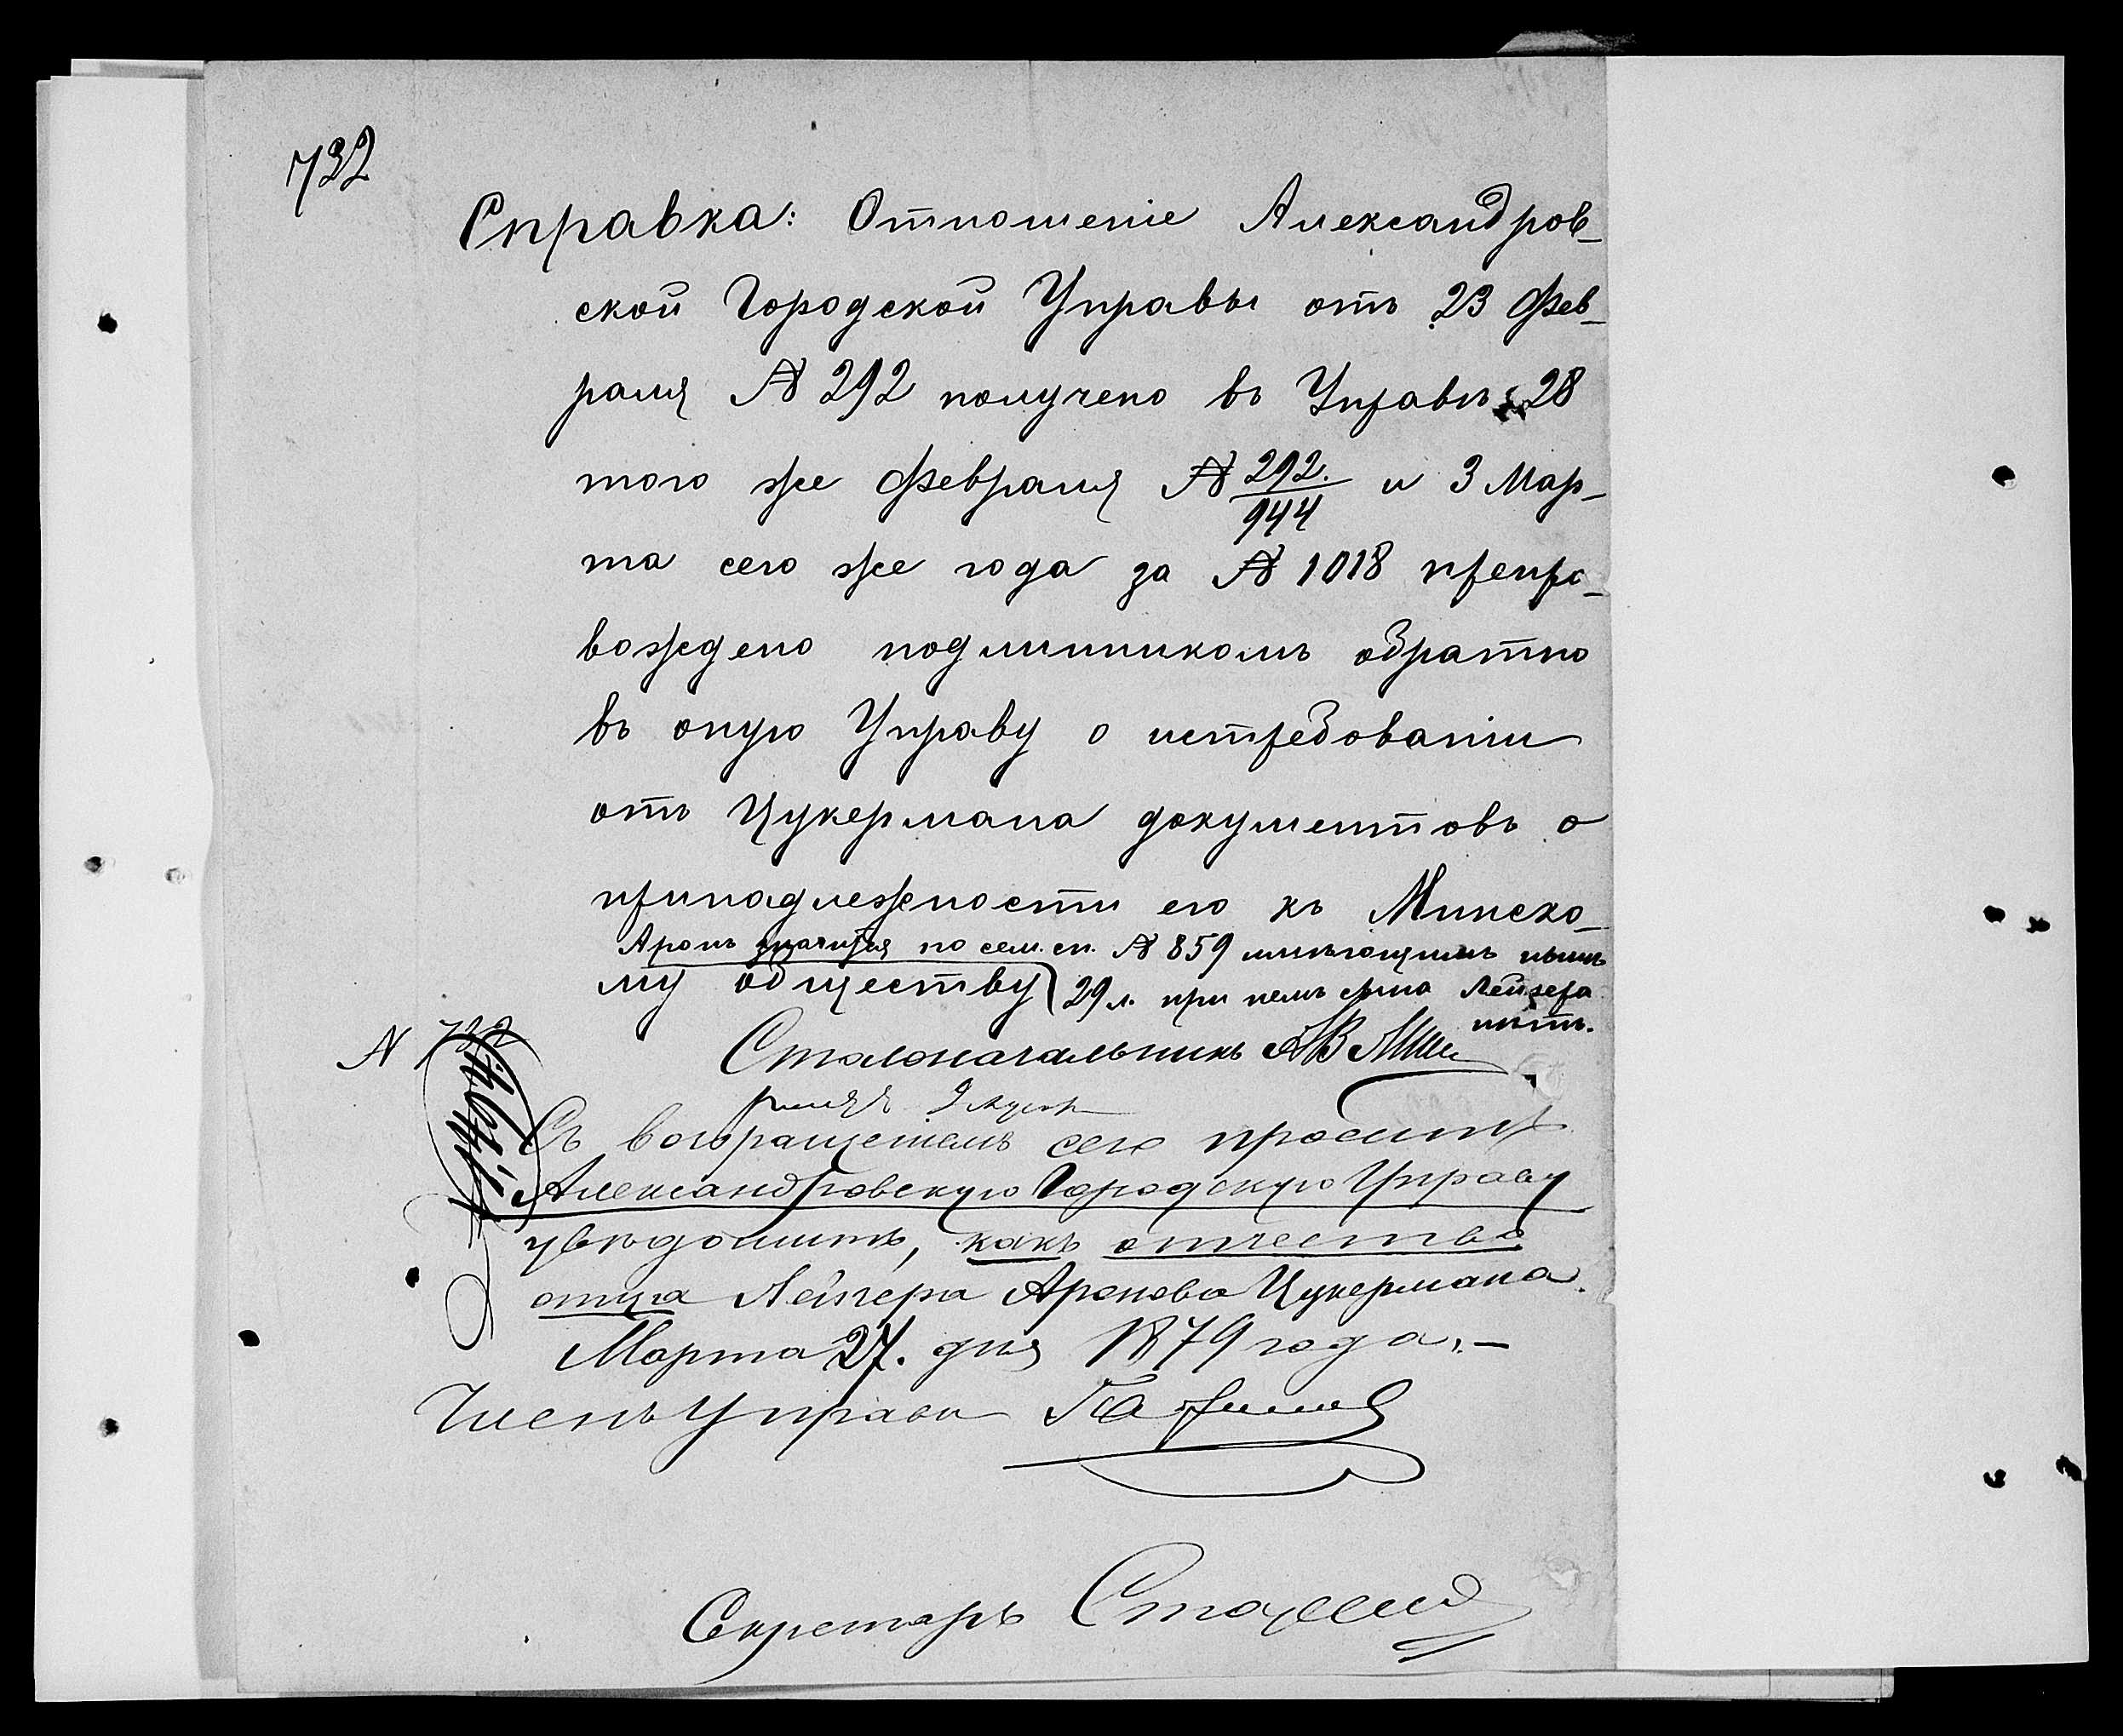 732
Справка: Отношеніе Александров-
ской Городской Управы отъ 23 Фев-
раля № 292 получено въ Управѣ 28
того же Февраля № 292./944 и 3 Мар-
та сего же года за № 1018 препро-
вождено подлинникомъ обратно
въ оную Управу о истребованіи
отъ Цукермана документовъ о
принадлежности его къ Минско-
Аронъ значится по сем. сп. № 859 имѣющимъ нынѣ
му обществу 29 л. при немъ сына Лейзера
нѣтъ.
Столоначальникъ
N 732
Съ возвращеніемъ сего проситъ
Александровскую Городскую Управу
увѣдомить, какъ отчество
отца Лейзера Аронова Цукермана.
Марта 27. дня 1879 года.—
Членъ Управы
Секретарь